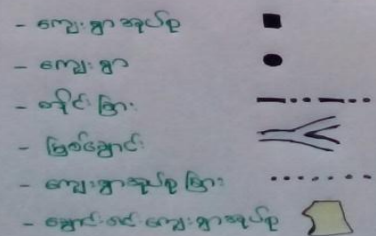 - ကျေးရွာအုပ်စု
- ကျေးရွာ
- တိုင်းခြား
- မြစ်ချောင်း
- ကျေးရွာအုပ်စုခြား
- ချောင်းဝင်ကျေးရွာအုပ်စု